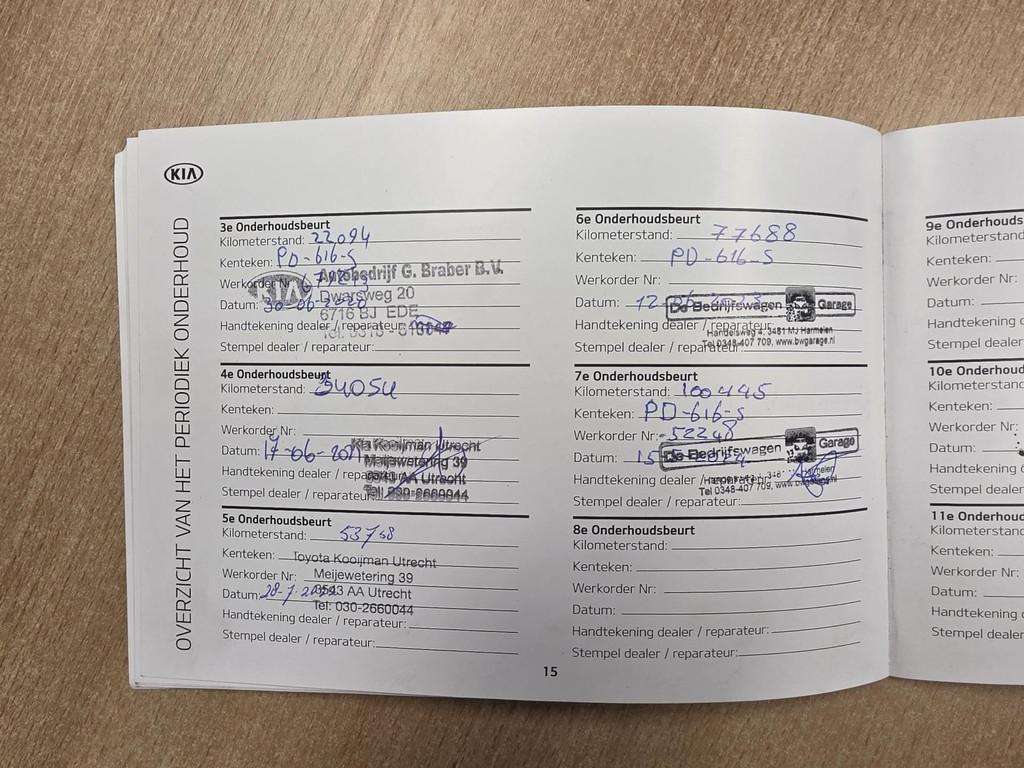 KIA
OVERZICHT VAN HET PERIODIEK ONDERHOUD
3e Onderhoudsbeurt
Kilometerstand: 22094
Kenteken: PD-616-S
Werkorder Nr:
Datum: 30-06-2020
Handtekening dealer / reparateur:
Stempel dealer / reparateur:
KIA
Autobedrijf G. Braber B.V.
Dwarsweg 20
6716 BJ EDE
4e Onderhoudsbeurt
Kilometerstand: 34054
Kenteken:
Werkorder Nr:
Datum: 17-06-2021
Handtekening dealer / reparateur:
Stempel dealer / reparateur:
Kia Kooijman Utrecht
Meijewetering 39
3543 AA Utrecht
Tel: 030-2660044
5e Onderhoudsbeurt
Kilometerstand: 53748
Kenteken:
Werkorder Nr:
Datum: 28-7-2022
Handtekening dealer / reparateur:
Stempel dealer / reparateur:
Toyota Kooijman Utrecht
Meijewetering 39
3543 AA Utrecht
Tel: 030-2660044
6e Onderhoudsbeurt
Kilometerstand: 77688
Kenteken: PD-616-S
Werkorder Nr:
Datum: 12-06-2023
Handtekening dealer / reparateur:
Stempel dealer / reparateur:
De Bedrijfswagen Garage
Handelsweg 4, 3481 MJ Harmelen
Tel 0348-407 709, www.bwgarage.nl
7e Onderhoudsbeurt
Kilometerstand: 100445
Kenteken: PD-616-S
Werkorder Nr: 52248
Datum: 15
Handtekening dealer / reparateur:
Stempel dealer / reparateur:
De Bedrijfswagen Garage
Harmelen
Tel 0348-407 709,
8e Onderhoudsbeurt
Kilometerstand:
Kenteken:
Werkorder Nr:
Datum:
Handtekening dealer / reparateur:
Stempel dealer / reparateur:
15
9e Onderhouds
Kilometerstand
Kenteken:
Werkorder Nr:
Datum:
Handtekening d
Stempel dealer
10e Onderhou
Kilometerstand
Kenteken:
Werkorder Nr:
Datum:
Handtekening
Stempel dealer
11e Onderhou
Kilometerstand
Werkorder Nr:
Datum:
Handtekening
Stempel dealer